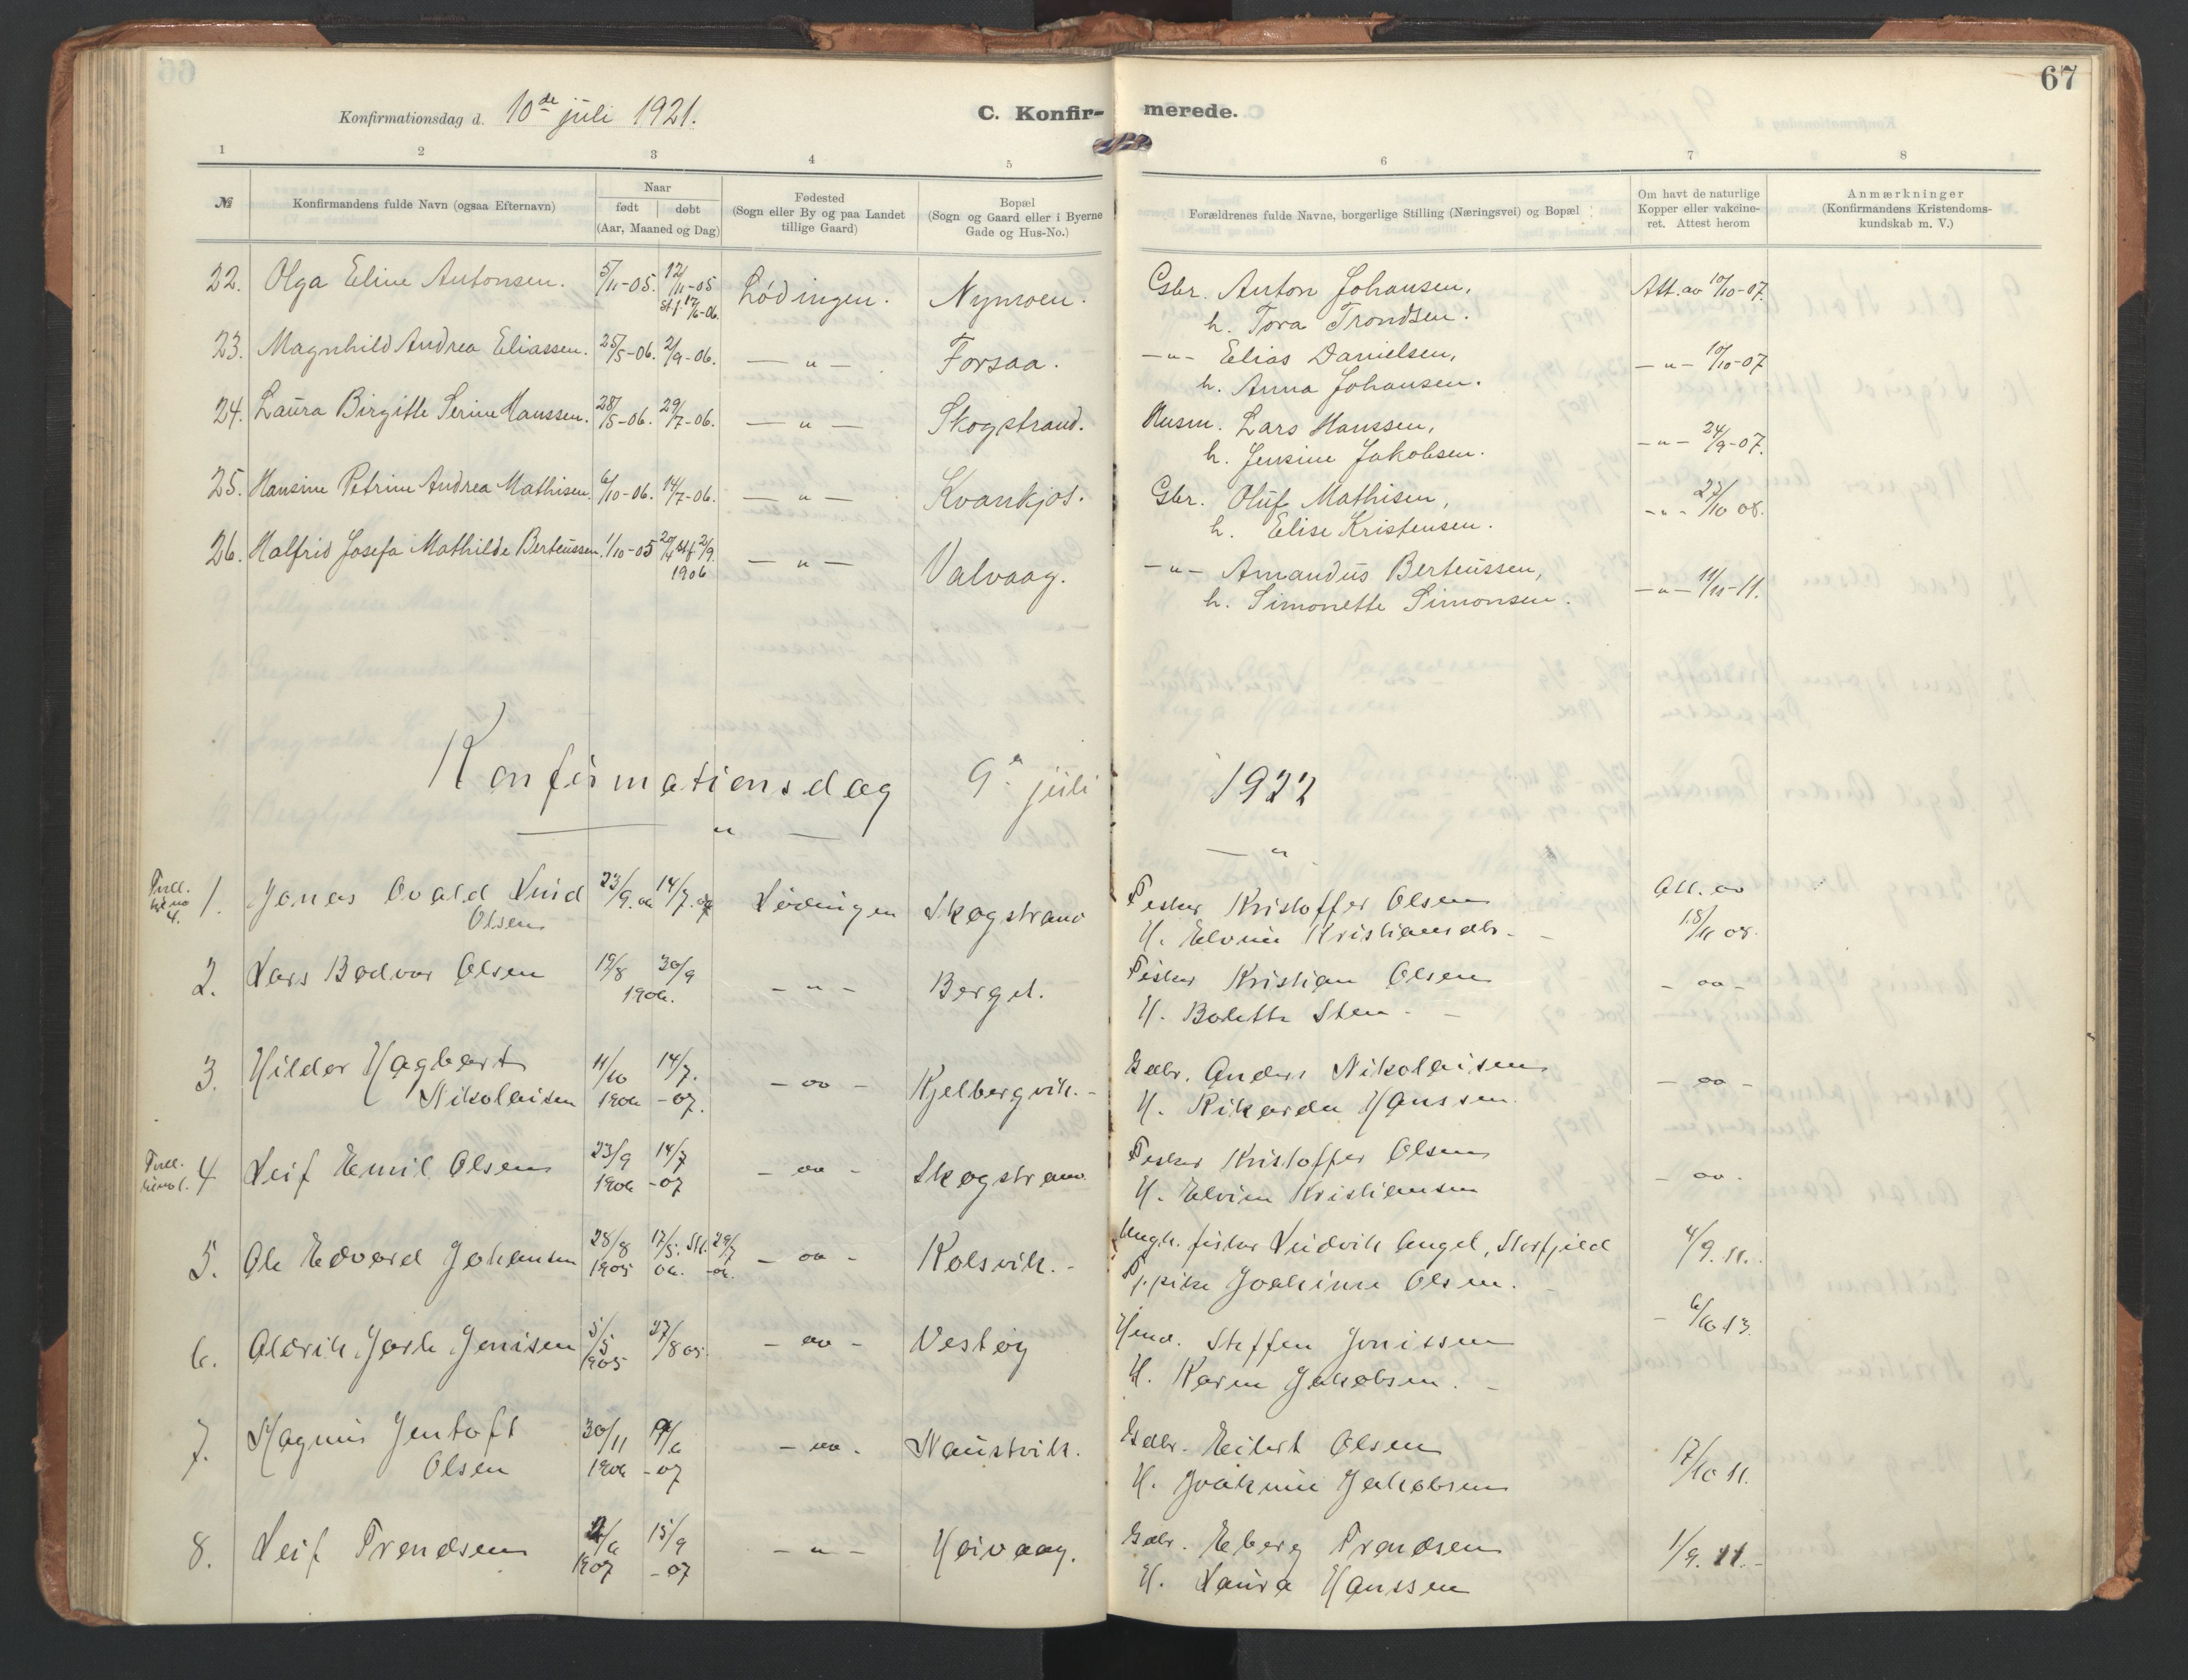 67
Konfirmationsdag d. 10de juli 1921.
C. Konfir- merede.
1 2 3 4 5 6 7 8
№
Konfirmandens fulde Navn (ogsaa Efternavn)
Naar
født døbt
(Aar, Maaned og Dag)
Fødested
(Sogn eller By og paa Landet
tillige Gaard)
Bopæl
(Sogn og Gaard eller i Byerne
Gade og Hus-No.)
Forældrenes fulde Navne, borgerlige Stilling (Næringsvei) og Bopæl
Om havt de naturlige
Kopper eller vakcine-
ret. Attest herom
Anmærkninger
(Konfirmandens Kristendoms-
kundskab m. V.)
22. Olga Eline Antonsen. 5/11-05. 12/11-05 Lødingen. Nymoen. Gbr. Anton Johansen, Att. av 10/10-07.
stf. 17/6-06. h. Tora Trondsen.
23. Magnhild Andrea Eliassen. 25/5-06. 2/9-06. — " — Forsaa. —"— Elias Danielsen, —"— 10/10-07
h. Anna Johansen.
24. Laura Birgitte Serine Hanssen. 28/5-06. 29/7-06. — " — Skogstrand. Husm. Lars Hanssen, —"— 24/9-07.
h. Jensine Jakobsen.
25. Hansine Petrine Andrea Mathisen. 6/10-06. 14/7-06. — " — Kvankjos. Gbr. Oluf Mathisen, —"— 23/10 08.
h. Elise Kristensen.
26. Halfrid Josefa Mathilde Berteussen. 1/10-05 20/4 stf. 2/9. — " — Valvaag. —"— Amandus Berteussen, —"— 11/11-11.
1906 h. Simonette Simonsen.
Konfirmationsdag 9de juli 1922
— " — — "
Tvill.
4.
1. Jonas Ovald Lund 23/9.06 14/7.07 Lødingen Skogstrand Fisker Kristoffer Olsen Att. oo
Olsen H. Elvine Kristiansdtr. 18/11 08.
2. Lars Bodvar Olsen 19/8 30/9 - " - Berget. Fisker Kristian Olsen - oo -
1906. H. Bolette Sten.
3. Hildor Hagbart 11/10 14/7. - oo - Kjelbergvik. Gdbr. Anders Nikolaisen - oo -
Nikolaisen 1906 -07. H. Rikarda Hanssen.
Tvill.
4 Leif Emil Olsen 23/9 14/7 - oo - Skogstrand Fisker Kristoffer Olsen - oo -
1906 -07 H. Elvine Kristiansen
5. Ole Edvard Johansen 28/8 17/5. Stf. 29/7 - oo - Kolsvik. Ungk. fisker Ludvik Angel, Storfjeld 4/9. 11.
1905 06. -06. Pike Joakime Olsen.
6. Aldrik Jarle Jenisen 5/5 27/8 05. - oo - Vestøy Steffen Jenissen - 6/10 13.
1905 H. Karen Jakobsen.
7. Magnus Jentoft 30/11 9/6 - oo - Naustvik. Gdbr. Eilert Olsen 17/10 11.
Olsen 1906 -07 H. Joakime Jakobsen
8. Leif Trondsen 2/6 15/9 - " - Høivaag. Gdbr. Eberg Trondsen 1/9. 11.-
1907 -07 H. Laura Hanssen